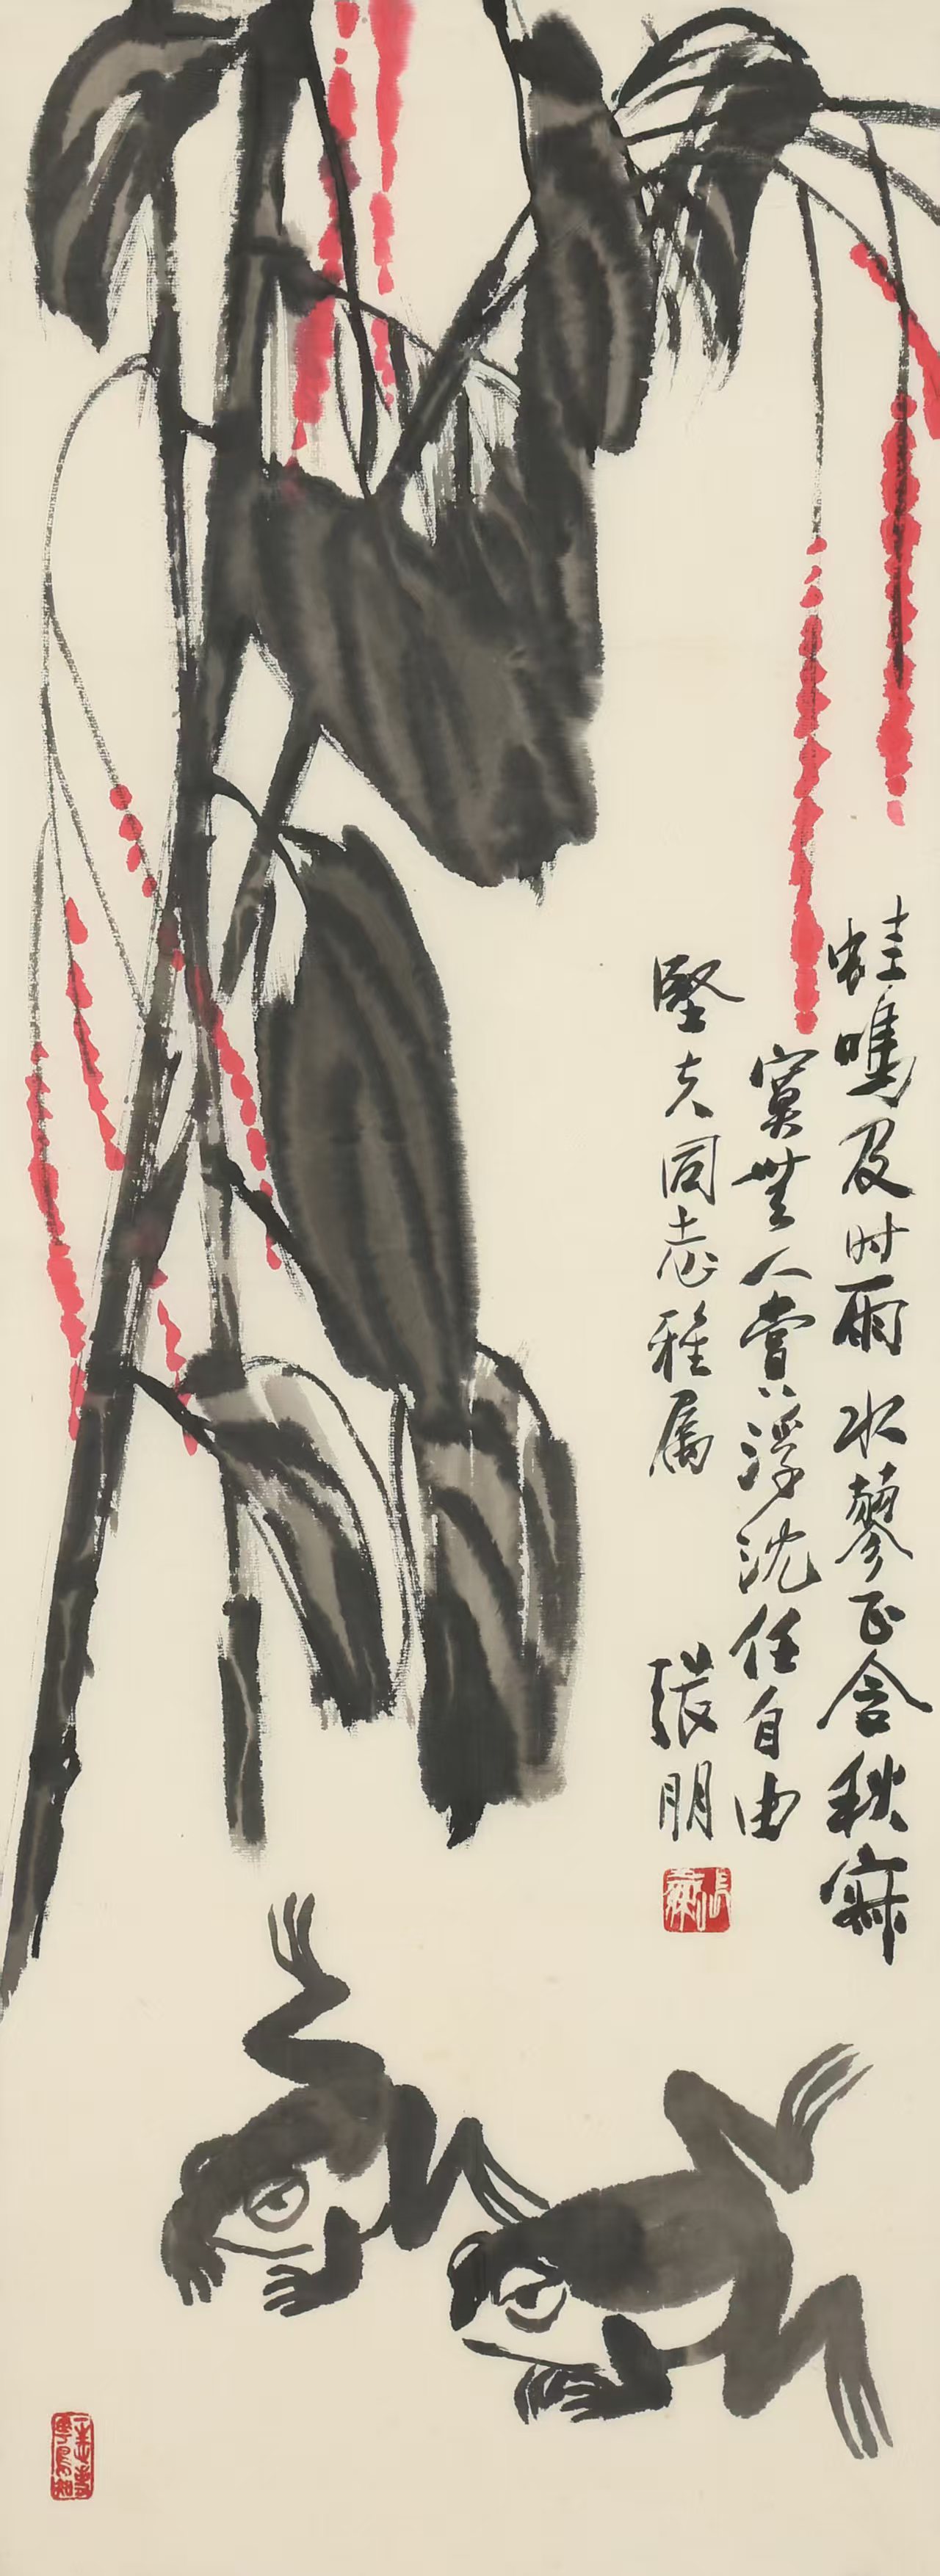 蛙鳴及时雨水蓼正含秋寂
寞無人賞浮沈任自由
堅夫同志雅属
張朋